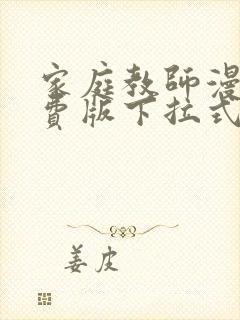 家庭教師漫
費版下拉式
姜皮